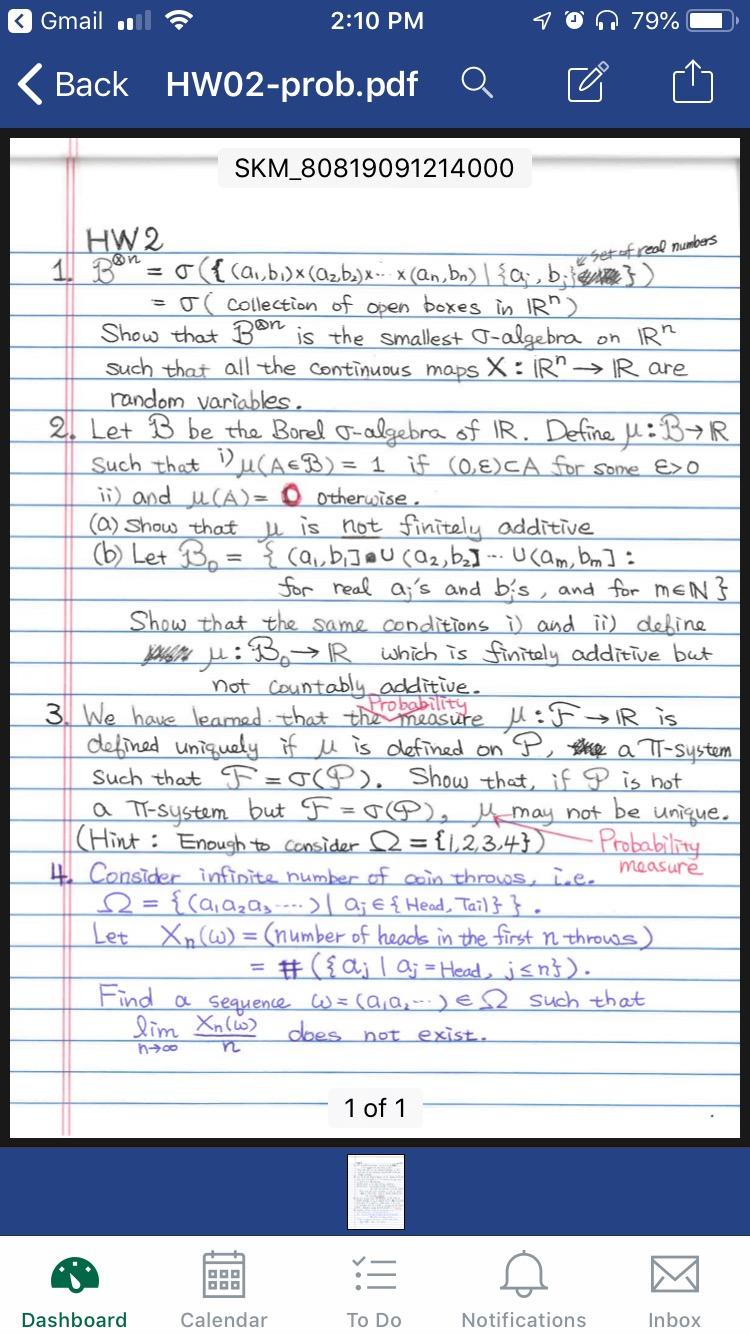 Gmail 2:10 PM 79%
Back HW02-prob.pdf
SKM_80819091214000
HW2
set of real numbers
1. B^⊗n = σ({(a₁,b₁)×(a₂,b₂)×⋯×(aₙ,bₙ) | {aⱼ, bⱼ} })
= σ( collection of open boxes in ℝⁿ)
Show that B^⊗n is the smallest σ-algebra on ℝⁿ
such that all the continuous maps X : ℝⁿ → ℝ are
random variables.
2. Let B be the Borel σ-algebra of ℝ. Define μ : B → ℝ
such that i) μ(A∈B) = 1 if (0,ε)⊂A for some ε>0
ii) and μ(A) = 0 otherwise.
(a) Show that μ is not finitely additive
(b) Let B₀ = { (a₁,b₁] ∪ (a₂,b₂] ⋯ ∪(aₘ,bₘ] :
for real aⱼ's and bⱼ's, and for m∈ℕ }
Show that the same conditions i) and ii) define
μ : B₀ → ℝ which is finitely additive but
not countably additive.
Probability
3. We have learned that the measure μ : F → ℝ is
defined uniquely if μ is defined on P, a π-system
such that F = σ(P). Show that, if P is not
a π-system but F = σ(P), μ may not be unique.
(Hint : Enough to consider Ω = {1,2,3,4}) Probability
measure
4. Consider infinite number of coin throws, i.e.
Ω = {(a₁a₂a₃⋯⋯) | aⱼ∈{Head, Tail} }.
Let Xₙ(ω) = (number of heads in the first n throws)
= #({aⱼ | aⱼ = Head, j≤n}).
Find a sequence ω=(a₁a₂⋯) ∈ Ω such that
lim n→∞ Xₙ(ω)/n does not exist.
1 of 1
Dashboard Calendar To Do Notifications Inbox